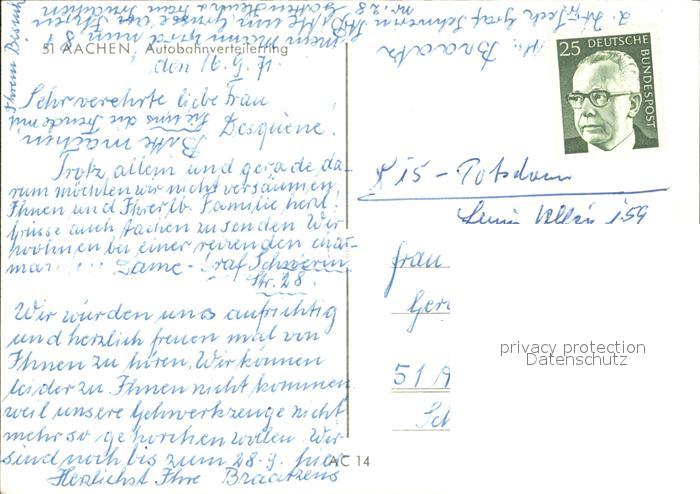 51 AACHEN, Autobahnverteilerring
den 16.9.71.
Sehr verehrte liebe Frau
Desquene!
Trotz allem und gerade da-
rum möchten wir nicht versäumen,
Ihnen und Ihrer lb. Familie herzl.
Grüsse aus Aachen zu senden. Wir
wohnen bei einer reizenden char-
man Dame - Graf Schwerin
Str. 28.
Wir würden uns aufrichtig
und herzlich freuen mal von
Ihnen zu hören. Wir können
leider zu Ihnen nicht kommen
weil unsere Gehwerkzeuge nicht
mehr so gehorchen wollen. Wir
sind noch bis zum 28.9. hier
Herzlichst Ihre Braatzens
Ihrem Besuch
Sie uns die Freude mit
Bitte machen
nr: 28
Braatz
25 DEUTSCHE
BUNDESPOST
X 15 - Potsdam
159
Frau
51 A
privacy protection
Datenschutz
AC 14